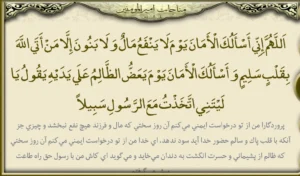 مناجات امیرالمومنین
اَللّٰهُمَّ اِنّی اَسْأَلُکَ الْأَمَانَ یَوْمَ لَا یَنْفَعُ مَالٌ وَ لَا بَنُونَ اِلَّا مَنْ أَتَی اللهَ
بِقَلْبٍ سَلِیمٍ وَ اَسْأَلُکَ الْأَمَانَ یَوْمَ یَعَضُّ الظَّالِمُ عَلَی یَدَیْهِ یَقُولُ یَا
لَیْتَنِی اتَّخَذْتُ مَعَ الرَّسُولِ سَبِیلاً
پروردگارا من از تو درخواست ایمنی می کنم آن روز سختی که مال و فرزند هیچ نفع نبخشد و چیزی جز
آنکه با قلب پاک و سالم حضور خدا آید سود ندهد، ای خدا من از تو درخواست ایمنی می کنم آن روز سختی
که ظالم از پشیمانی و حسرت انگشت به دندان می خاید و می گوید ای کاش من با رسول حق راه طاعت